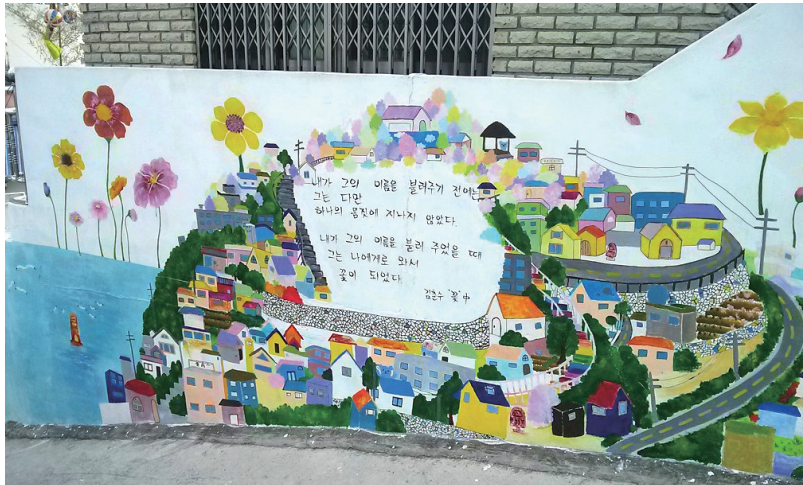 내가 그의 이름을 불러주기 전에는
그는 다만
하나의 몸짓에 지나지 않았다.
내가 그의 이름을 불러 주었을 때
그는 나에게로 와서
꽃이 되었다
김춘수 '꽃' 中